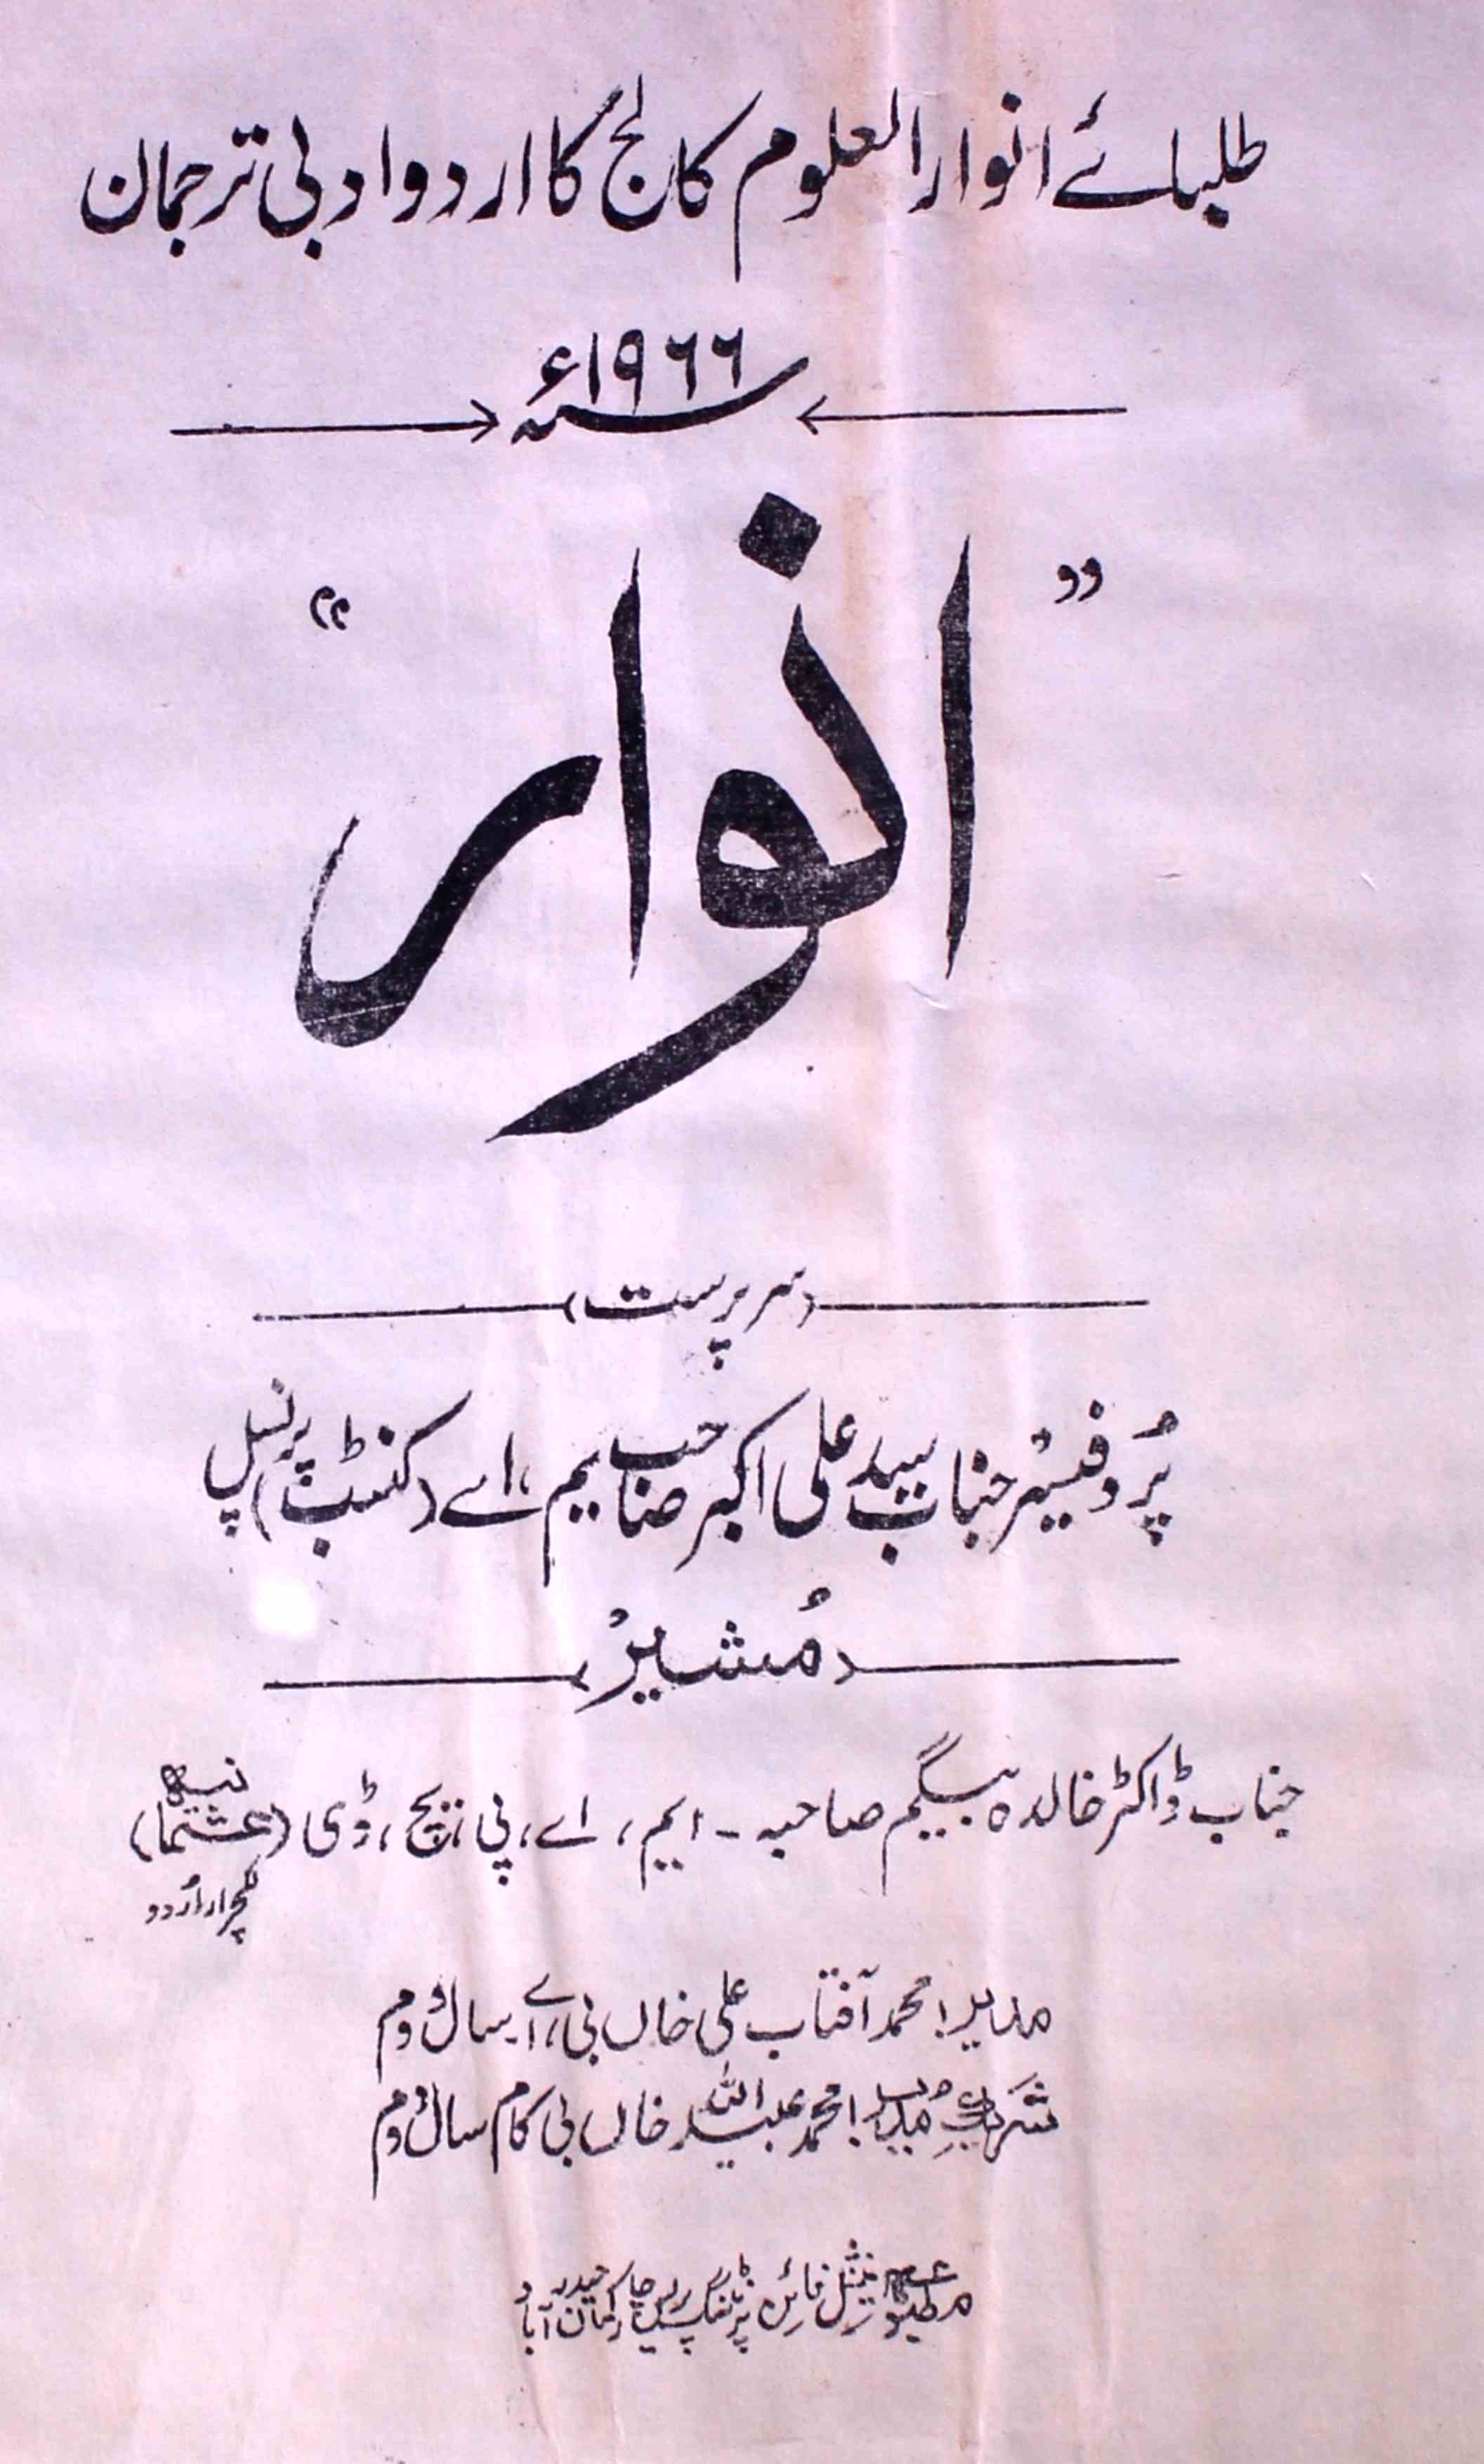 طلبائے انوار العلوم کالج کا اردو ادبی ترجمان
سنہ ۱۹۶۶ء
”انوار“
(سرپرست)
پروفیسر جناب سید علی اکبر صاحب ایم، اے (کنٹب) پرنسپل
(مُشیر)
جناب ڈاکٹر خالدہ بیگم صاحبہ - ایم، اے، پی، ایچ، ڈی (عثمانیہ)
لکچرار اُردو
مدیر: محمد آفتاب علی خاں بی، اے سال دوم
شریک مُدیر: محمد عبید اللہ خاں بی کام سال دوم
مطبوعہ نیشنل فائن پرنٹنگ پریس چارکمان حیدرآباد